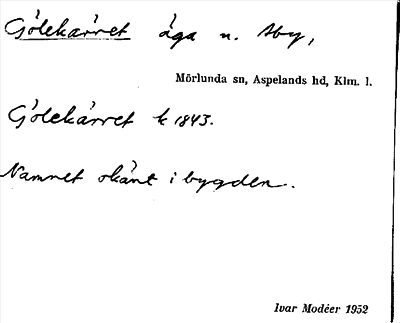 Gölekärret äga n. Åby,
Mörlunda sn, Aspelands hd, Klm. l.
Gölekärret k 1843.
Namnet okänt i bygden.
Ivar Modéer 1952